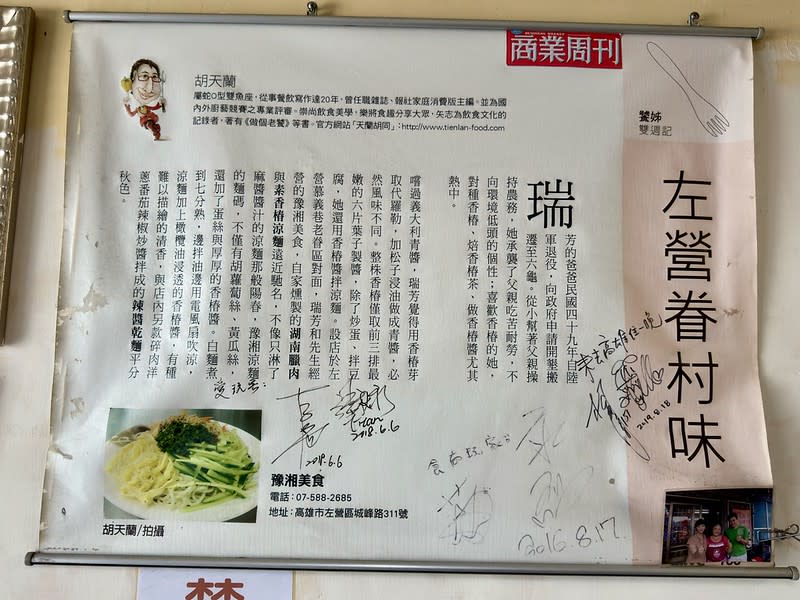 商業周刊
饕姊
雙週記
左營眷村味
胡天蘭
屬蛇O型雙魚座，從事餐飲寫作達20年，曾任職雜誌、報社家庭消費版主編。並為國
內外廚藝競賽之專業評審。崇尚飲食美學，樂將食趣分享大眾，矢志為飲食文化的
記錄者，著有《做個老饕》等書。官方網站「天蘭胡同」：http://www.tienlan-food.com
瑞
芳的爸爸民國四十九年自陸
軍退役，向政府申請開墾搬
遷至六龜，從小幫著父親操
持農務，她承襲了父親吃苦耐勞，不
向環境低頭的個性；喜歡香椿的她，
對種香椿、焙香椿茶、做香椿醬尤其
熱中。
嚐過義大利青醬，瑞芳覺得用香椿芽
取代羅勒，加松子浸油做成青醬，必
然風味不同。整株香椿僅取前三排最
嫩的六片葉子製醬，除了炒蛋、拌豆
腐，她還用香椿醬拌涼麵。設店於左
營慕義巷老眷區對面，瑞芳和先生經
營的豫湘美食，自家燻製的湖南臘肉
與素香椿涼麵遠近馳名，不像只淋了
麻醬醬汁的涼麵那般陽春，豫湘涼麵
的麵碼，不僅有胡蘿蔔絲，黃瓜絲，
還加了蛋絲與厚厚的香椿醬。白麵煮
到七分熟，邊拌油邊用電風扇吹涼，
涼麵加上橄欖油浸透的香椿醬，有種
難以描繪的清香，與店內另款碎肉洋
蔥番茄辣椒炒醬拌成的辣醬乾麵平分
秋色。
愛玩客：
2018.6.6
2018.6.6
食尚玩家
2016.8.17
來去高雄住一晚
2019.8.18
豫湘美食
電話：07-588-2685
地址：高雄市左營區城峰路311號
胡天蘭/拍攝